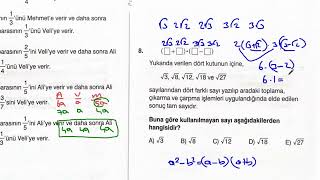 1/3 'ünü Mehmet'e verir ve daha sonra
parasının 1/3 'ünü Veli'ye verir.
2/5 'ini Ali'ye verir ve daha sonra
parasının 1/4 'ünü Veli'ye verir.
verir ve daha sonra Ali
1/3 'ünü Veli'ye verir.
parasının 1/5 'ini Ali'ye verir ve daha sonra Ali
A V M
4a 4a 4a
√3 2√2 2√3 3√2 3√3
2√2 √3 3√3 3√2
8. (□+□)·(□-□)
2(√3+√2) 3(√3-√2)
6·(3-2)
6·1=
Yukarıda verilen dört kutunun içine,
√3, √8, √12, √18 ve √27
sayılarından dört farklı sayı yazılıp aradaki toplama,
çıkarma ve çarpma işlemleri uygulandığında elde edilen
sonuç tam sayıdır.
Buna göre kullanılmayan sayı aşağıdakilerden
hangisidir?
A) √3 B) √8 C) √12 D) √18 E) √27
a²-b²=(a-b)(a+b)